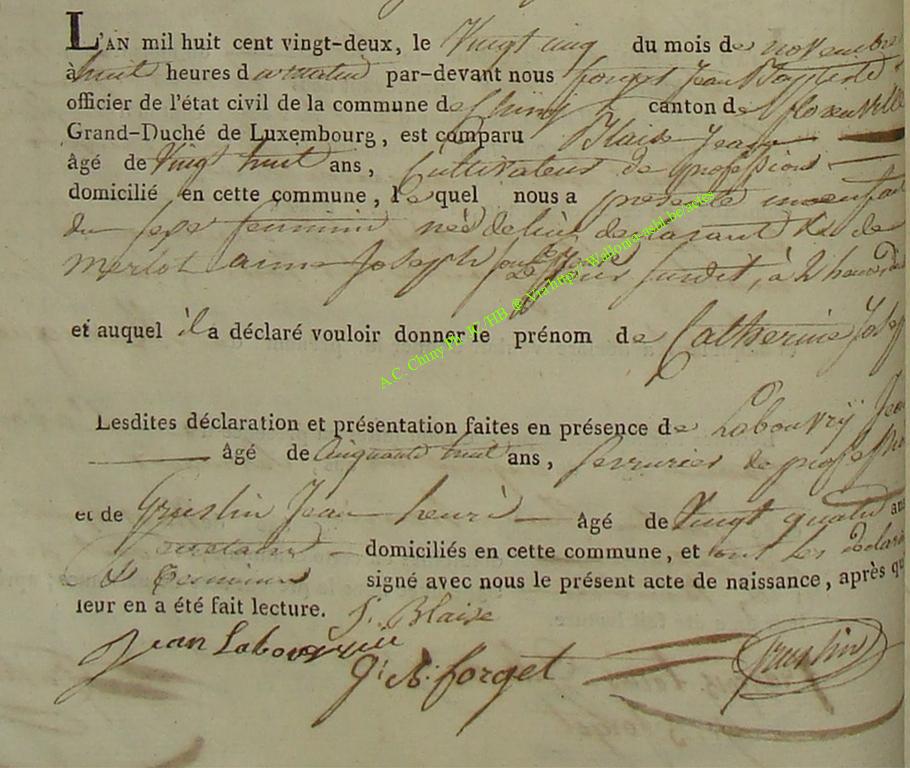 L'AN mil huit cent vingt-deux, le Vingt cinq du mois de novembre
à huit heures du matin par-devant nous forget Jean Baptiste
officier de l'état civil de la commune de Chiny canton de florenville
Grand-Duché de Luxembourg, est comparu Blaise Jean
âgé de Vingt huit ans, Cultivateur de profession
domicilié en cette commune, lequel nous a présenté un enfant
du sexe feminin née de lui declarant & de
Merlot anne Joseph son le jour susdit, à 2 heures du
et auquel il a déclaré vouloir donner le prénom de Catherine Josep
Lesdites déclaration et présentation faites en présence de Labouvrÿ Jean
âgé de Cinquante huit ans, serrurier de professio
et de Gruslin Jean henri âgé de Vingt quatre ans
domiciliés en cette commune, et ont les declara
& Temoins signé avec nous le présent acte de naissance, après qu
leur en a été fait lecture. J. Blaise
Jean Labouvrie J. B. forget gruslin
A.C. Chiny HB @ Via http/ Wallonia-asbl.be/actes